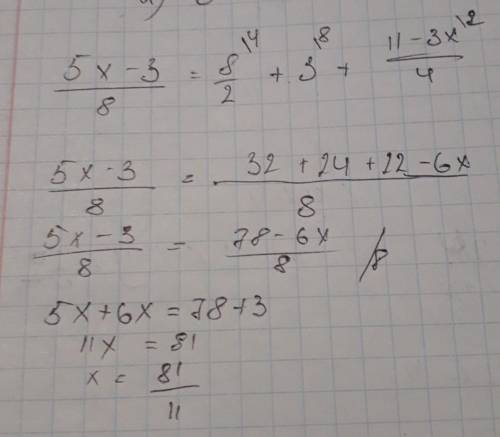 (5x - 3)/8 = 8\4/2 + 3\8 + (11 - 3x)\2/4
(5x - 3)/8 = (32 + 24 + 22 - 6x)/8
(5x - 3)/8 = (78 - 6x)/8 /8
5x + 6x = 78 + 3
11x = 81
x = 81/11